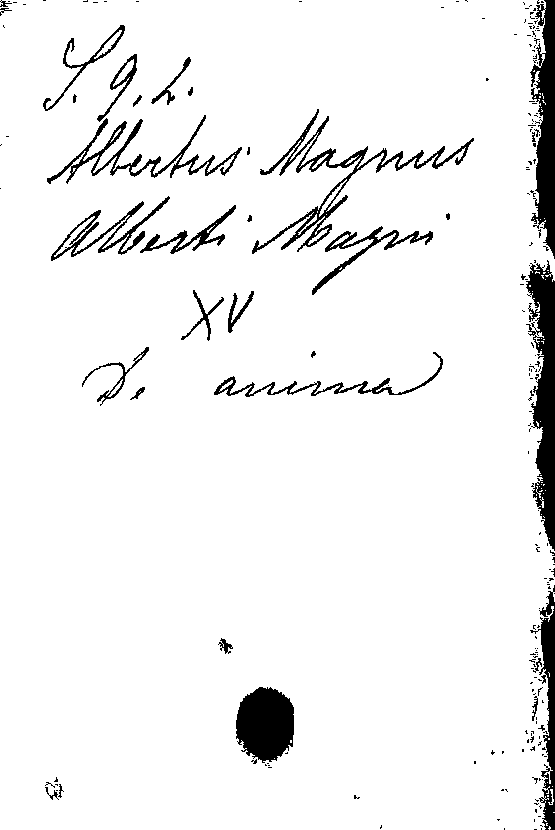 S. 9. 2.
Albertus Magnus
Alberti Magni
XV
De anima